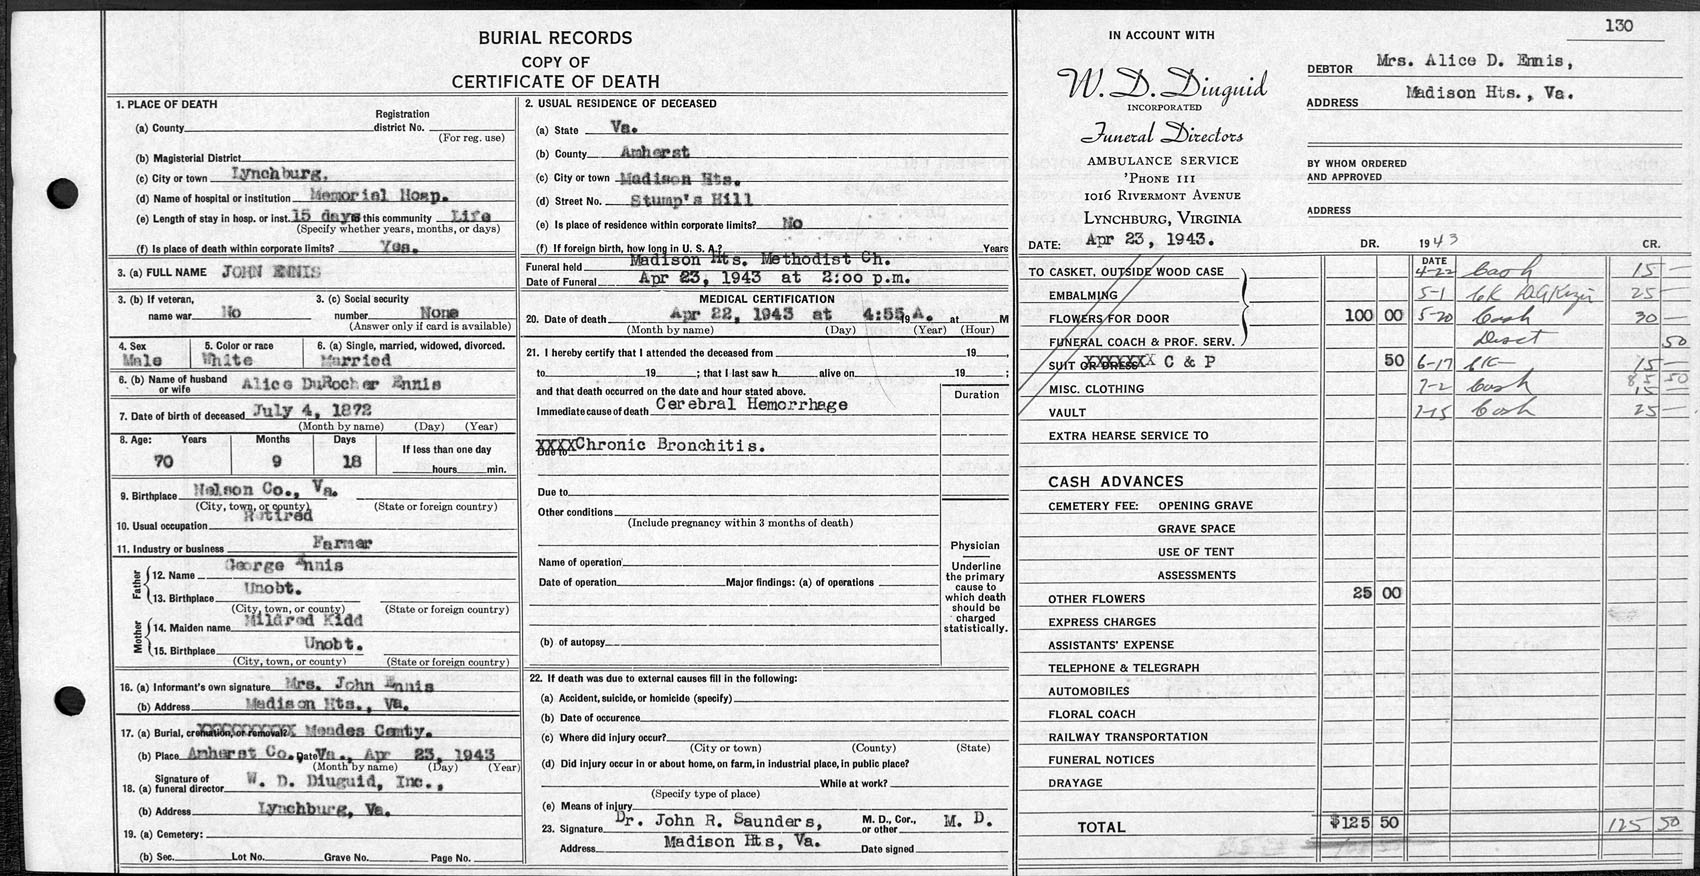 BURIAL RECORDS
COPY OF
CERTIFICATE OF DEATH
1. PLACE OF DEATH
Registration
(a) County district No.
(For reg. use)
(b) Magisterial District
(c) City or town Lynchburg,
(d) Name of hospital or institution Memorial Hosp.
(e) Length of stay in hosp. or inst. 15 days this community Life
(Specify whether years, months, or days)
(f) Is place of death within corporate limits? Yes.
3. (a) FULL NAME JOHN ENNIS
3. (b) If veteran, 3. (c) Social security
name war No number None
(Answer only if card is available)
4. Sex 5. Color or race 6. (a) Single, married, widowed, divorced.
Male White Married
6. (b) Name of husband
or wife Alice DuRocher Ennis
7. Date of birth of deceased July 4, 1872
(Month by name) (Day) (Year)
8. Age: Years Months Days If less than one day
70 9 18 hours min.
9. Birthplace Nelson Co., Va.
(City, town, or county) (State or foreign country)
10. Usual occupation Retired
11. Industry or business Farmer
Father
12. Name George Ennis
13. Birthplace Unobt.
(City, town, or county) (State or foreign country)
Mother
14. Maiden name Mildred Kidd
15. Birthplace Unobt.
(City, town, or county) (State or foreign country)
16. (a) Informant's own signature Mrs. John Ennis
(b) Address Madison Hts., Va.
17. (a) Burial, cremation, or removal? XXXXXXXXXX Meades Cemty.
(b) Place Amherst Co. Date Va., Apr 23, 1943
(Month by name) (Day) (Year)
Signature of
18. (a) funeral director W. D. Diuguid, Inc.,
(b) Address Lynchburg, Va.
19. (a) Cemetery:
(b) Sec. Lot No. Grave No. Page No.
2. USUAL RESIDENCE OF DECEASED
(a) State Va.
(b) County Amherst
(c) City or town Madison Hts.
(d) Street No. Stump's Hill
(e) Is place of residence within corporate limits? No
(f) If foreign birth, how long in U. S. A.? Years
Funeral held Madison Hts. Methodist Ch.
Date of Funeral Apr 23, 1943 at 2:00 p.m.
MEDICAL CERTIFICATION
20. Date of death Apr 22, 1943 at 4:55 A. 19 at M
(Month by name) (Day) (Year) (Hour)
21. I hereby certify that I attended the deceased from 19 ,
to 19 ; that I last saw h alive on 19 ;
and that death occurred on the date and hour stated above.
Duration
Immediate cause of death Cerebral Hemorrhage
Due to XXXX Chronic Bronchitis.
Due to
Other conditions
(Include pregnancy within 3 months of death)
Name of operation
Date of operation Major findings: (a) of operations
(b) of autopsy
Physician
Underline
the primary
cause to
which death
should be
charged
statistically.
22. If death was due to external causes fill in the following:
(a) Accident, suicide, or homicide (specify)
(b) Date of occurence
(c) Where did injury occur?
(City or town) (County) (State)
(d) Did injury occur in or about home, on farm, in industrial place, in public place?
While at work?
(Specify type of place)
(e) Means of injury
23. Signature Dr. John R. Saunders, M. D., Cor., or other M. D.
Address Madison Hts, Va. Date signed
130
IN ACCOUNT WITH
W. D. Diuguid
INCORPORATED
Funeral Directors
AMBULANCE SERVICE
'PHONE 111
1016 RIVERMONT AVENUE
LYNCHBURG, VIRGINIA
DEBTOR Mrs. Alice D. Ennis,
ADDRESS Madison Hts., Va.
BY WHOM ORDERED
AND APPROVED
ADDRESS
DATE: Apr 23, 1943. DR. 1943 CR.
DATE
TO CASKET, OUTSIDE WOOD CASE 4-22 Cash 15 —
EMBALMING 5-1 CK 25 —
FLOWERS FOR DOOR 100 00 5-20 Cash 30 —
FUNERAL COACH & PROF. SERV. Disct 50
SUIT OR DRESS XXXXXXX C & P 50 6-17 15 —
MISC. CLOTHING 7-2 Cash 85 50 15 —
VAULT 7-15 Cash 25 —
EXTRA HEARSE SERVICE TO
CASH ADVANCES
CEMETERY FEE: OPENING GRAVE
GRAVE SPACE
USE OF TENT
ASSESSMENTS
OTHER FLOWERS 25 00
EXPRESS CHARGES
ASSISTANTS' EXPENSE
TELEPHONE & TELEGRAPH
AUTOMOBILES
FLORAL COACH
RAILWAY TRANSPORTATION
FUNERAL NOTICES
DRAYAGE
TOTAL $125 50 125 50